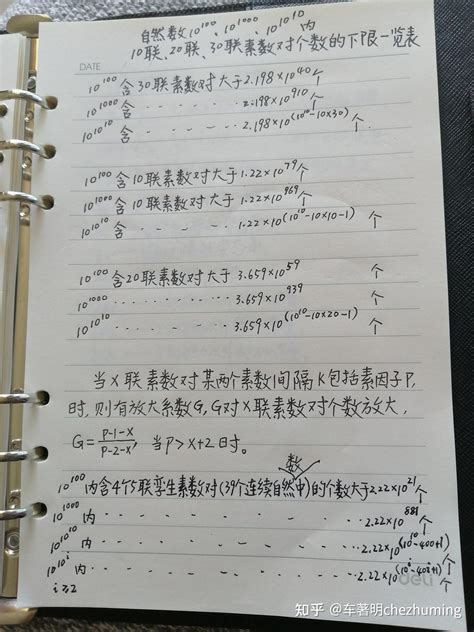 自然数10¹⁰⁰、10¹⁰⁰⁰、10^10^10 内
10联、20联、30联素数对个数的下限一览表
DATE
10¹⁰⁰含30联素数对大于2.198×10⁴⁰个
10¹⁰⁰⁰含 - - - - - 2.198×10⁹¹⁰个
10^10^10含 - - - - - 2.198×10^(10^10-10×30)个
10¹⁰⁰含10联素数对大于1.22×10⁷⁹个
10¹⁰⁰⁰含10联素数对大于1.22×10⁹⁶⁹个
10^10^10含 - - - - 1.22×10^(10^10-10×10-1) 个
10¹⁰⁰含20联素数对大于 3.659×10⁵⁹ 个
10¹⁰⁰⁰ ............ 3.659×10⁹³⁹ 个
10^10^10 ............ 3.659×10^(10^10-10×20-1) 个
当X联素数对某两个素数间隔K包括素因子P,
时,则有放大系数G,G对X联素数对个数放大,
G=(P-1-X)/(P-2-X), 当P>X+2日时。
10¹⁰⁰内含4个5联孪生素数对(39个连续自然数中)的个数大于2.22×10²¹个
10¹⁰⁰⁰内 - - - - - - - - 2.22×10⁸⁸¹个
10^10^10内 - - - - - - - - 2.22×10^(10^10-400+1)个
10^10^i内 - - - - - - - - 2.22×10^(10^i-40i+1)个
i≥2
deli
知乎 @车著明chezhuming